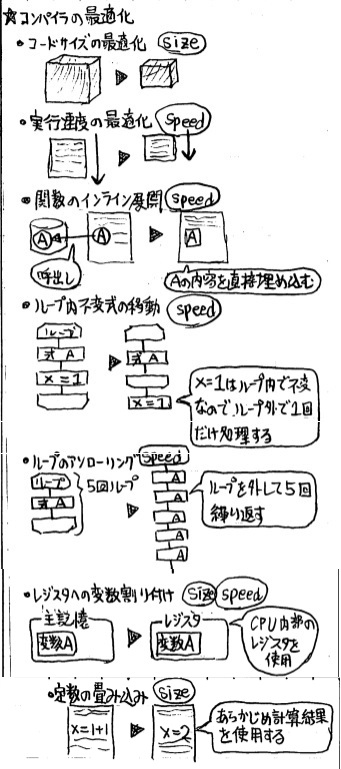 ☆コンパイラの最適化
・コードサイズの最適化 size
・実行速度の最適化 speed
・関数のインライン展開 speed
A A A
呼出し
Aの内容を直接埋め込む
・ループ内不変式の移動 speed
ループ
式A 式A
x=1
x=1
x=1はループ内で不変
なのでループ外で1回
だけ処理する
・ループのアンローリング speed
ループ 5回ループ
式A
A
A
A
A
A
ループを外して5回
繰り返す
・レジスタへの変数割り付け size speed
主記憶 レジスタ
変数A 変数A
CPU内部の
レジスタを
使用
・定数の畳み込み size
x=1+1 x=2
あらかじめ計算結果
を使用する